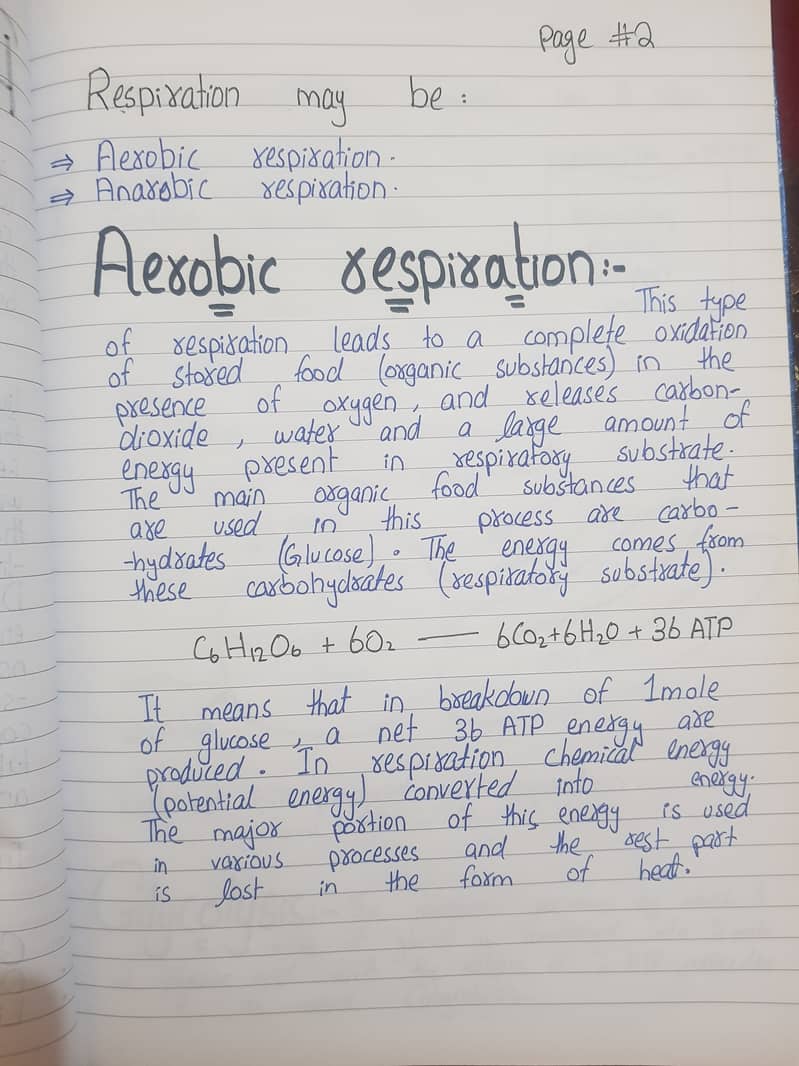 Page #2
Respiration may be :
⇒ Aerobic respiration.
⇒ Anarobic respiration.
Aerobic respiration:-
This type
of respiration leads to a complete oxidation
of stored food (organic substances) in the
presence of oxygen, and releases carbon-
dioxide, water and a large amount of
energy present in respiratory substrate.
The main organic food substances that
are used in this process are carbo-
-hydrates (Glucose). The energy comes from
these carbohydrates (respiratory substrate).
C6H12O6 + 6O2 — 6CO2+6H2O + 36 ATP
It means that in breakdown of 1mole
of glucose, a net 36 ATP energy are
produced. In respiration chemical energy
(potential energy) converted into energy.
The major portion of this energy is used
in various processes and the rest part
is lost in the form of heat.